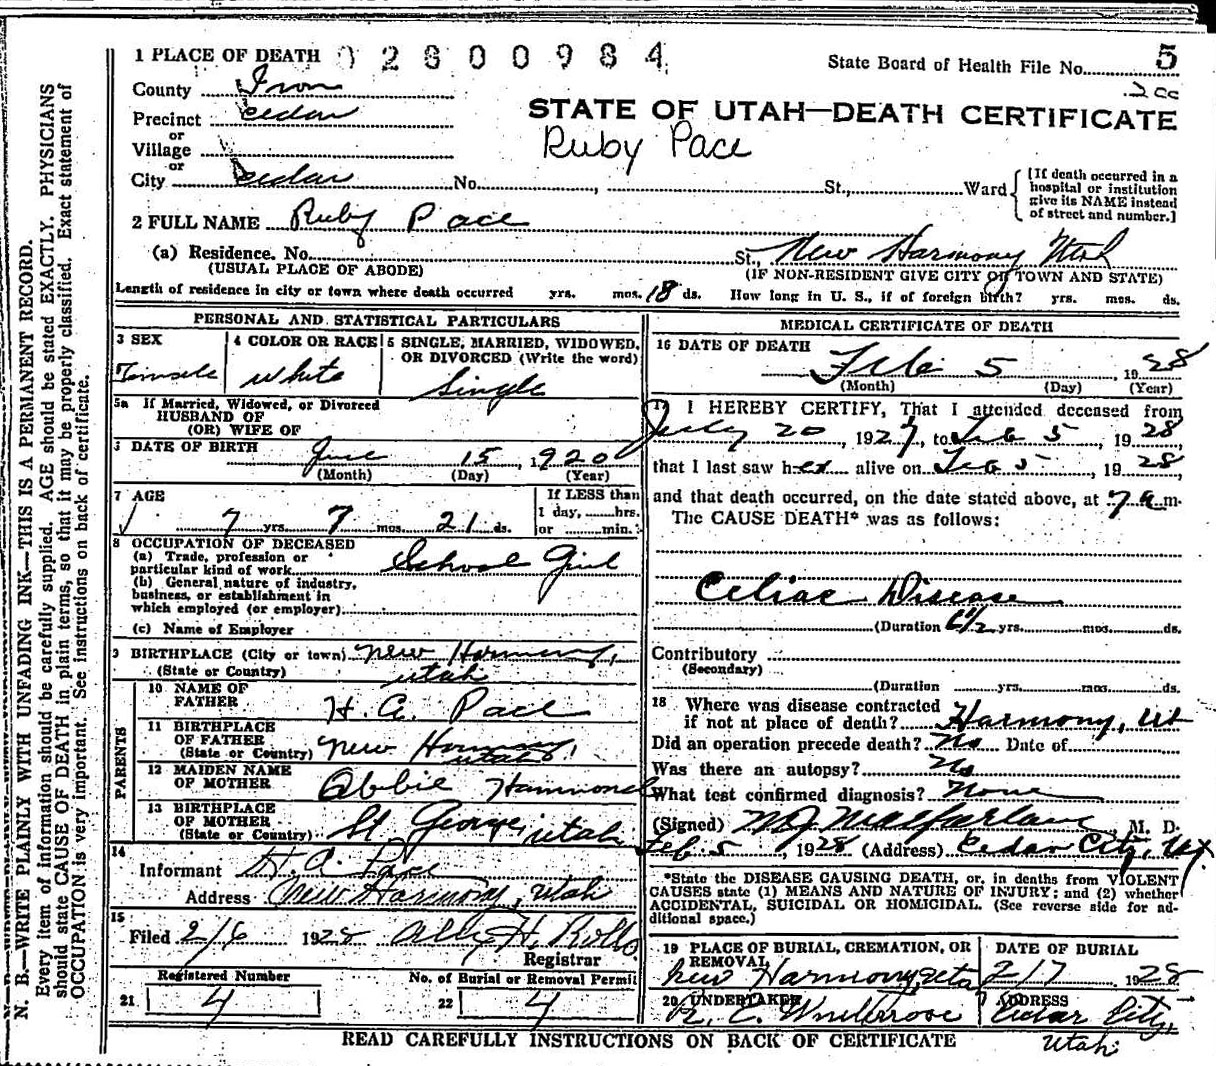 1 PLACE OF DEATH 02800984
State Board of Health File No. 5
2 cc
County Iron
STATE OF UTAH—DEATH CERTIFICATE
Precinct Cedar
or
Village
Ruby Pace
or
City Cedar No. , St., Ward
[If death occurred in a
hospital or institution
give its NAME instead
of street and number.]
2 FULL NAME Ruby Pace
(a) Residence. No. St., New Harmony Utah
(USUAL PLACE OF ABODE) (IF NON-RESIDENT GIVE CITY OR TOWN AND STATE)
Length of residence in city or town where death occurred yrs. mos. 18 ds. How long in U. S., if of foreign birth? yrs. mos. ds.
PERSONAL AND STATISTICAL PARTICULARS
3 SEX 4 COLOR OR RACE 5 SINGLE, MARRIED, WIDOWED,
OR DIVORCED (Write the word)
Female White Single
5a If Married, Widowed, or Divorced
HUSBAND OF
(OR) WIFE OF
6 DATE OF BIRTH June 15, 1920
(Month) (Day) (Year)
7 AGE If LESS than
1 day, hrs.
7 yrs. 7 mos. 21 ds. or min.
8 OCCUPATION OF DECEASED
(a) Trade, profession or
particular kind of work School Girl
(b) General nature of industry,
business, or establishment in
which employed (or employer)
(c) Name of Employer
9 BIRTHPLACE (City or town) New Harmony,
(State or Country) Utah
PARENTS
10 NAME OF
FATHER H. A. Pace
11 BIRTHPLACE
OF FATHER
(State or Country) New Harmony, Utah
12 MAIDEN NAME
OF MOTHER Abbie Hammond
13 BIRTHPLACE
OF MOTHER
(State or Country) St George, Utah
14
Informant H. A. Pace
Address New Harmony, Utah
15
Filed 2/6 1928
Registrar
Registered Number No. of Burial or Removal Permit
21 4 22 4
MEDICAL CERTIFICATE OF DEATH
16 DATE OF DEATH
Feb 5, 1928
(Month) (Day) (Year)
17 I HEREBY CERTIFY, That I attended deceased from
July 20, 1927, to Feb 5, 1928
that I last saw her alive on Feb 5, 1928,
and that death occurred, on the date stated above, at 7 a.m.
The CAUSE DEATH* was as follows:
Celiac Disease
(Duration 6 1/2 yrs. mos. ds.
Contributory
(Secondary)
(Duration yrs. mos. ds.
18 Where was disease contracted
if not at place of death? Harmony, Ut
Did an operation precede death? No Date of
Was there an autopsy? No
What test confirmed diagnosis? None
(Signed) M J Macfarlane, M. D.
Feb. 5, 1928 (Address) Cedar City, Ut
*State the DISEASE CAUSING DEATH, or, in deaths from VIOLENT
CAUSES state (1) MEANS AND NATURE OF INJURY; and (2) whether
ACCIDENTAL, SUICIDAL OR HOMICIDAL. (See reverse side for ad-
ditional space.)
19 PLACE OF BURIAL, CREMATION, OR
REMOVAL DATE OF BURIAL
New Harmony, Utah 2/7 1928
20 UNDERTAKER ADDRESS
Cedar City,
Utah
READ CAREFULLY INSTRUCTIONS ON BACK OF CERTIFICATE
N. B.—WRITE PLAINLY WITH UNFADING INK—THIS IS A PERMANENT RECORD.
Every item of information should be carefully supplied. AGE should be stated EXACTLY. PHYSICIANS
should state CAUSE OF DEATH in plain terms, so that it may be properly classified. Exact statement of
OCCUPATION is very important. See instructions on back of certificate.